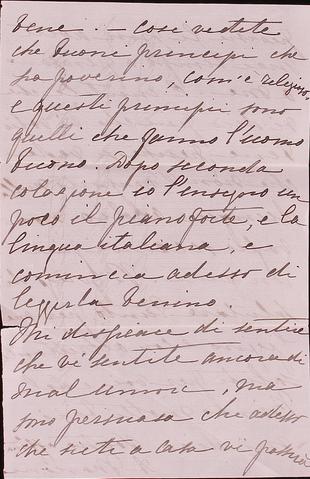 bene. — Così vedete
che buoni principi che
ha poverino, com'è religioso,
e questi principi sono
quelli che fanno l'uomo
buono. Dopo seconda
colazione io l'insegno un
poco il pianoforte, e la
lingua italiana, e
comincia adesso di
leggerla benino.
Mi dispiace di sentire
che vi sentite ancora di
mal umore, ma
sono persuasa che adesso
che siete a casa vi passerà